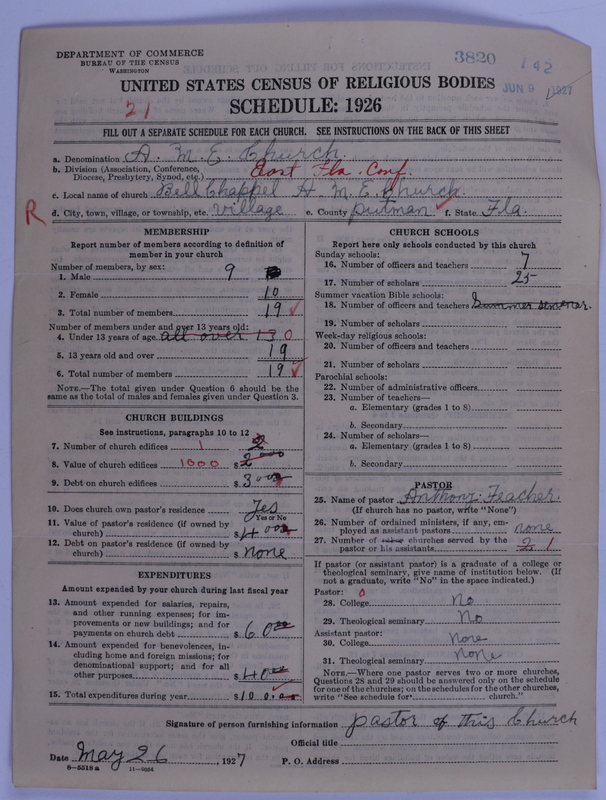 DEPARTMENT OF COMMERCE
BUREAU OF THE CENSUS
WASHINGTON
3820
142
JUN 9 1927
UNITED STATES CENSUS OF RELIGIOUS BODIES
21
SCHEDULE: 1926
FILL OUT A SEPARATE SCHEDULE FOR EACH CHURCH. SEE INSTRUCTIONS ON THE BACK OF THIS SHEET
a. Denomination A. M. E. Church.
b. Division (Association, Conference, Diocese, Presbytery, Synod, etc.) East Fla. Conf.
c. Local name of church Bell Chappel A. M. E. Church.
R
d. City, town, village, or township, etc. village e. County Putman f. State Fla.
MEMBERSHIP
Report number of members according to definition of member in your church
Number of members, by sex:
1. Male 9
2. Female 10
3. Total number of members 19
Number of members under and over 13 years old:
4. Under 13 years of age all over 13 0
5. 13 years old and over 19
6. Total number of members 19
NOTE.—The total given under Question 6 should be the same as the total of males and females given under Question 3.
CHURCH BUILDINGS
See instructions, paragraphs 10 to 12
7. Number of church edifices 1 2
8. Value of church edifices 1000 $ 2000
9. Debt on church edifices $ 300
10. Does church own pastor's residence Yes
Yes or No
11. Value of pastor's residence (if owned by church) $ 400
12. Debt on pastor's residence (if owned by church) $ none
EXPENDITURES
Amount expended by your church during last fiscal year
13. Amount expended for salaries, repairs, and other running expenses; for improvements or new buildings; and for payments on church debt $ 60.00
14. Amount expended for benevolences, including home and foreign missions; for denominational support; and for all other purposes $ 40.00
15. Total expenditures during year $ 100.00
CHURCH SCHOOLS
Report here only schools conducted by this church
Sunday schools:
16. Number of officers and teachers 7
17. Number of scholars 25
Summer vacation Bible schools:
18. Number of officers and teachers
19. Number of scholars
Week-day religious schools:
20. Number of officers and teachers
21. Number of scholars
Parochial schools:
22. Number of administrative officers
23. Number of teachers—
a. Elementary (grades 1 to 8)
b. Secondary
24. Number of scholars—
a. Elementary (grades 1 to 8)
b. Secondary
PASTOR
25. Name of pastor Anthony Feacher
(If church has no pastor, write "None")
26. Number of ordained ministers, if any, employed as assistant pastors none
27. Number of churches served by the pastor or his assistants 2 1
If pastor (or assistant pastor) is a graduate of a college or theological seminary, give name of institution below. (If not a graduate, write "No" in the space indicated.)
Pastor: 0
28. College No
29. Theological seminary No
Assistant pastor:
30. College None
31. Theological seminary none
NOTE.—Where one pastor serves two or more churches, Questions 28 and 29 should be answered only on the schedule for one of the churches; on the schedules for the other churches, write "See schedule for church."
Signature of person furnishing information pastor of this Church
Official title
Date May 26, 1927 P. O. Address
8—5518a 11—9054